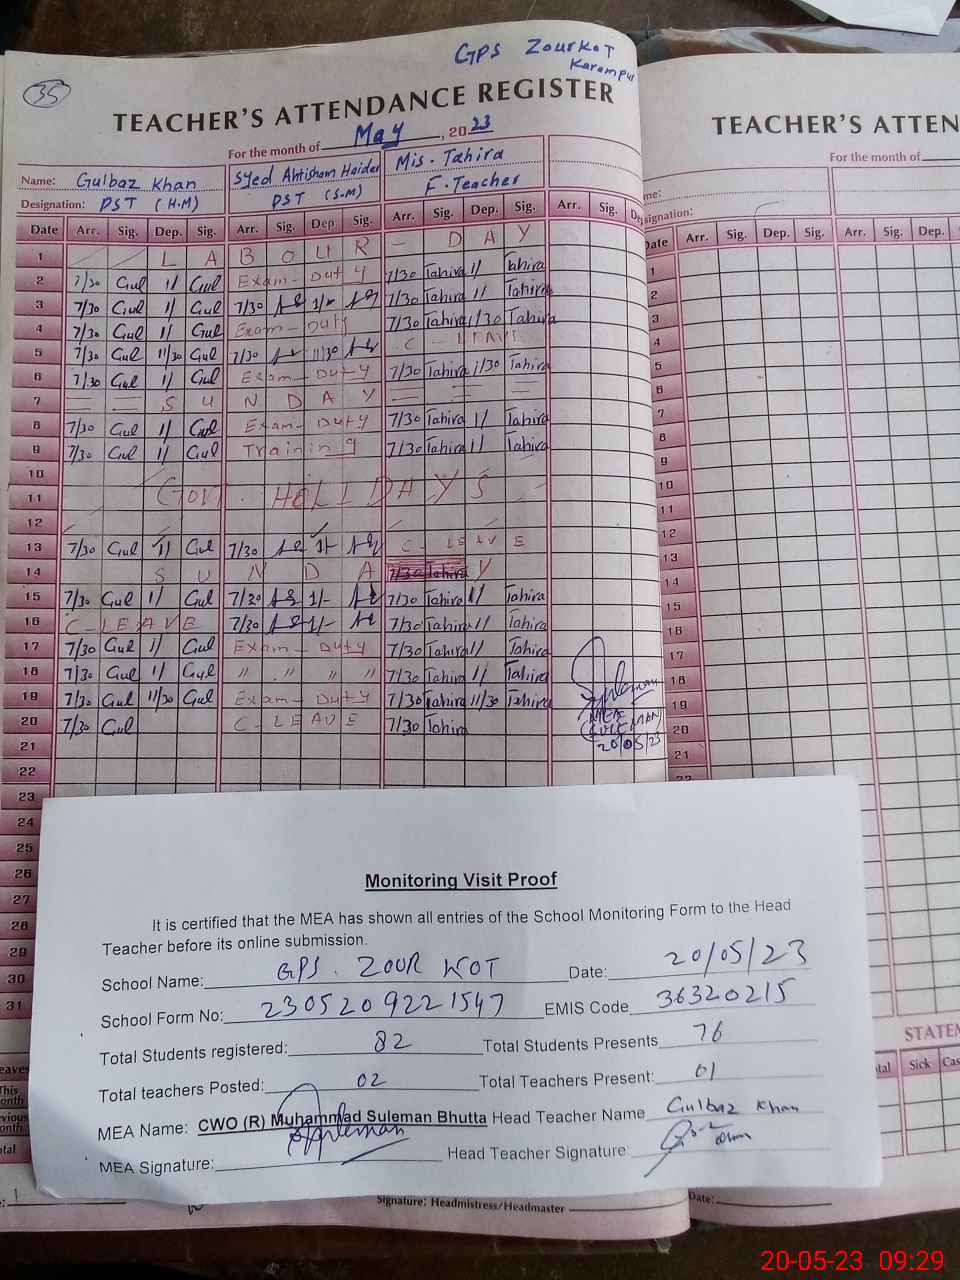 GPS Zourkot
Karampur
35
TEACHER'S ATTENDANCE REGISTER
For the month of May, 2023
Name: Gulbaz Khan Syed Ahtisham Haider Mis. Tahira
Designation: PST (H.M) PST (S.M) F. Teacher
Date Arr. Sig. Dep. Sig. Arr. Sig. Dep Sig. Arr. Sig. Dep. Sig. Arr. Sig. De
1 L A B O U R - D A Y
2 7/30 Gul 1/ Gul Exam - Duty 7/30 Tahira 1/ Tahira
3 7/30 Gul 1/ Gul 7/30 1/- 7/30 Tahira 1/ Tahira
4 7/30 Gul 1/ Gul Exam - Duty 7/30 Tahira 11/30 Tahira
5 7/30 Gul 11/30 Gul 7/30 11/30 C - LEAVE
6 7/30 Gul 1/ Gul Exam - Duty 7/30 Tahira 1/30 Tahira
7 S U N D A Y
8 7/30 Gul 1/ Gul Exam - Duty 7/30 Tahira 1/ Tahira
9 7/30 Gul 1/ Gul Training 7/30 Tahira 1/ Tahira
10
11 GOVT. HOLIDAYS
12
13 7/30 Gul 1/ Gul 7/30 1/- C - LEAVE
14 S U N D A 7/30 Tahira Y
15 7/30 Gul 1/ Gul 7/30 1/- 7/30 Tahira 1/ Tahira
16 C - LEAVE 7/30 1/- 7/30 Tahira 1/ Tahira
17 7/30 Gul 1/ Gul Exam - Duty 7/30 Tahira 1/ Tahira
18 7/30 Gul 1/ Gul " " " " 7/30 Tahira 1/ Tahira
19 7/30 Gul 11/30 Gul Exam - Duty 7/30 Tahira 11/30 Tahira
20 7/30 Gul C - LEAVE 7/30 Tahira
21
22
23
24
25
26
27
28
29
30
31
MEA
(SULEMAN)
20/05/23
TEACHER'S ATTEN
For the month of
me:
signation:
Date Arr. Sig. Dep. Sig. Arr. Sig. Dep.
1
2
3
4
5
6
7
8
9
10
11
12
13
14
15
16
17
18
19
20
21
22
Monitoring Visit Proof
It is certified that the MEA has shown all entries of the School Monitoring Form to the Head
Teacher before its online submission.
School Name: GPS. ZOUR KOT Date: 20/05/23
School Form No: 2305209221547 EMIS Code 36320215
Total Students registered: 82 Total Students Presents 76
Total teachers Posted: 02 Total Teachers Present: 01
MEA Name: CWO (R) Muhammad Suleman Bhutta Head Teacher Name Gulbaz Khan
MEA Signature: Head Teacher Signature:
STATEM
tal Sick Cas
eaves
This
onth
vious
onth
tal
Signature: Headmistress/Headmaster
Date:
20-05-23 09:29